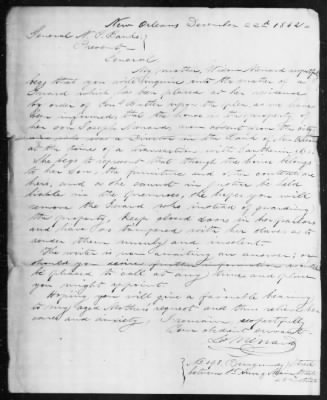 New Orleans December 22th 1862
General N. P. Banks
Present
General
My mother, Widow Menard respectfully
beg that you will inquire into the matter of a
Guard which has been placed at her residence
by order of Genl Butler upon the plea, as we have
been informed, that the house is the property of
her son Joseph Menard, now absent from the city
was a Director in the Bank of New Orleans
at the time of a transaction with
She begs to represent that though the house belongs
to her son, the furniture and other contents are
hers, and as she cannot in justice be held
liable in the premises, she hopes you will
remove the Guard who instead of guarding
the property, keep closed doors in her parlors
and have so tampered with her slaves as to
render them unruly and insolent.
The writer is now awaiting an answer; or
should you desire further information would
be pleased to call at any time and place
you might appoint.
Hoping you will give a favorable hearing
to my aged Mother's request and thus relieve her
cares and anxiety, I remain respectfully
Your obedient servant
L. Menard
No 198, Burgundy Street
between